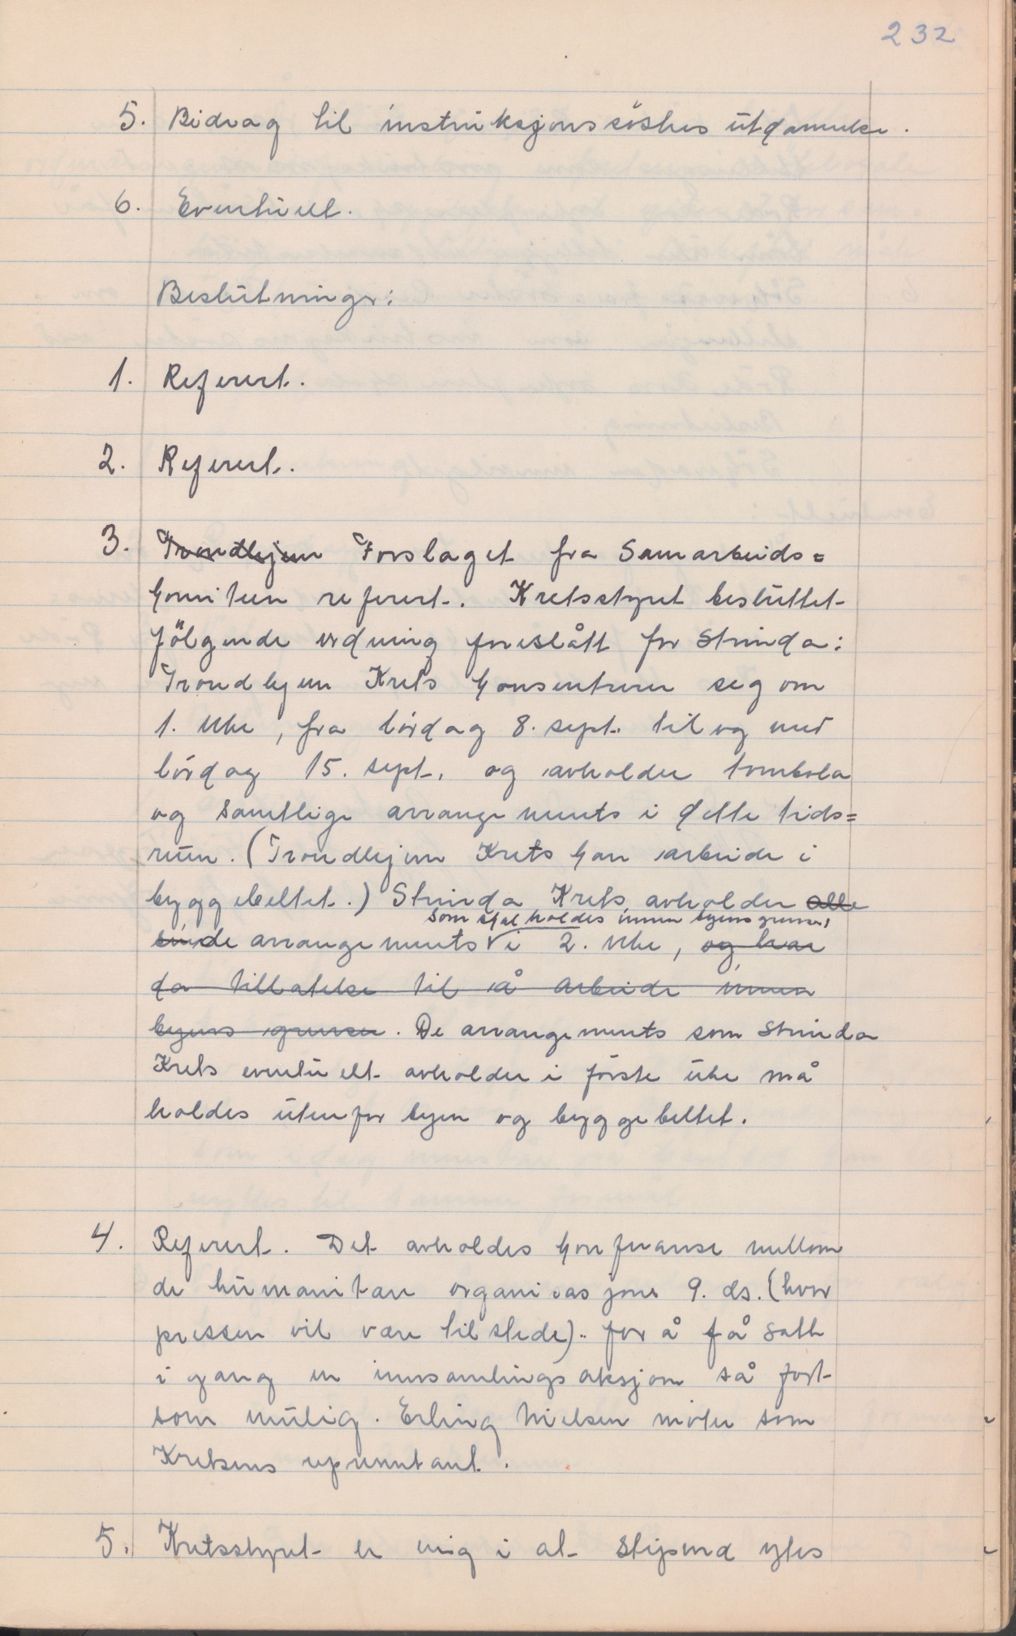 232
5. Bidrag til instruksjonssøstres utdannelse.
6. Eventuelt.
Beslutninger:
1. Referert.
2. Referert.
3. Trondhjem Forslaget fra Samarbeids=
komiteen referert. Kretsstyret besluttet
følgende ordning foreslått for Strinda:
Trondhjem Krets konsentrerer seg om
1. uke, fra lørdag 8. sept. til og med
lørdag 15. sept. og avholder tombola
og samtlige arrangements i dette tids=
rum. (Trondhjem Krets kan arbeide i
byggebeltet.) Strinda Krets avholder alle
som skal holdes innen byens grenser,
sine de arrangements i 2. uke, og har
da tillatelse til å arbeide innen
byens grenser. De arrangements som Strinda
Krets eventuelt avholder i første uke må
holdes utenfor byen og byggebeltet.
4. Referert. Det avholdes konferanse mellom
de humanitære organisasjoner 9. ds. (hvor
pressen vil være tilstede). for å få satt
i gang en innsamlingsaksjon så fort
som mulig. Erling Nielsen møter som
Kretsens representant.
5. Kretsstyret er enig i at stipend ytes